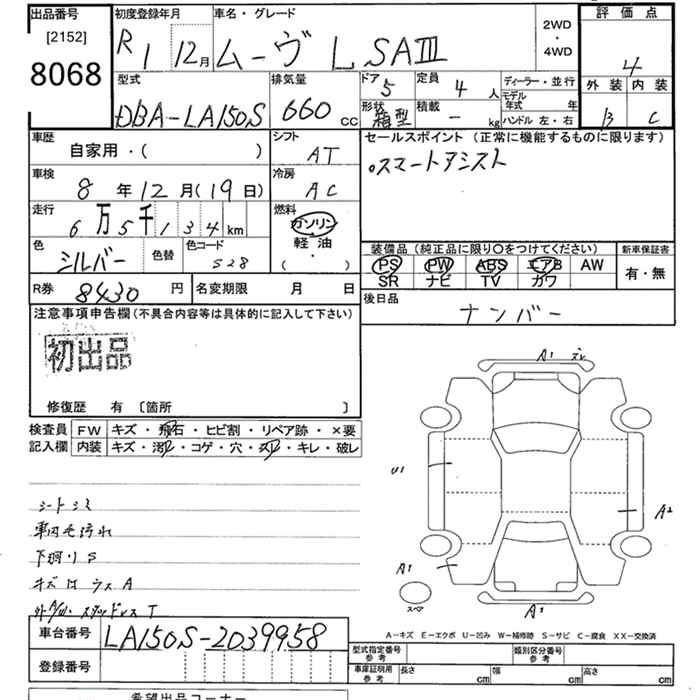 出品番号
[2152]
8068
初度登録年月
R1 12月
車名・グレード
ムーヴ L SAⅢ
2WD
・
4WD
評価点
4
外装 内装
B C
型式
DBA-LA150S
排気量
660 cc
ドア
5
定員
4 人
ディーラー・並行
モデル
年式 年
形状
箱型
積載
- kg
ハンドル 左・右
車歴
自家用・( )
シフト
AT
セールスポイント (正常に機能するものに限ります)
。スマートアシスト
車検
8 年 12 月(19 日)
冷房
AC
走行
6 万 5 千 1 3 4 km
燃料
ガソリン
軽油
( )
色
シルバー
色替
色コード
S28
装備品 (純正品に限り〇をつけてください)
PS PW ABS エアB AW
SR ナビ TV カワ
新車保証書
有・無
R券
8430 円
名変期限 月 日
後日品
ナンバー
注意事項申告欄(不具合内容等は具体的に記入して下さい)
初出品
修復歴 有 〔箇所 〕
検査員
記入欄
FW キズ・飛石・ヒビ割・リペア跡・×要
内装 キズ・汚レ・コゲ・穴・スレ・キレ・破レ
シートシミ
車内毛汚れ
下廻りS
キズ ウスA
スタッドレスT
A1 ズレ
U1
A2
A1
スペア
A1
A-キズ E-エクボ U-凹み W-補修跡 S-サビ C-腐食 XX-交換済
車台番号
LA150S-2039958
登録番号
型式指定番号
参考
類別区分番号
参考
車庫証明用
参考
長さ cm 幅 cm 高さ cm
希望出品コーナー